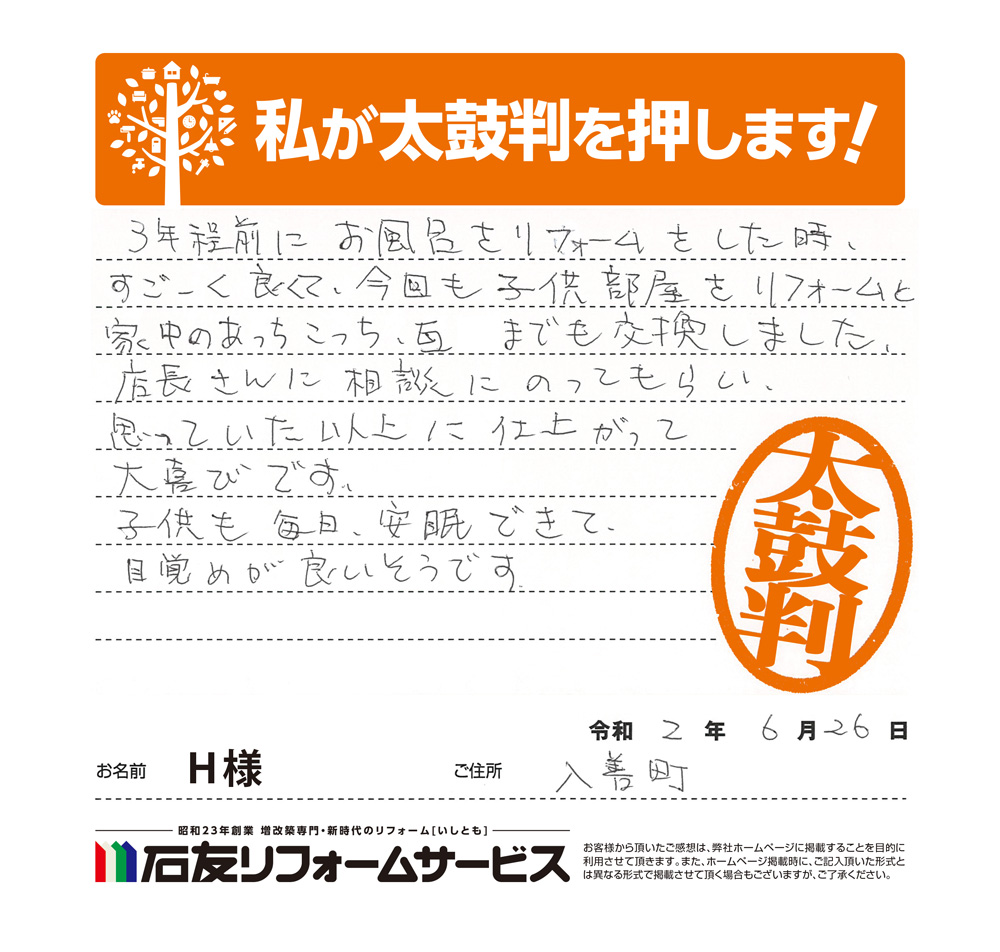 私が太鼓判を押します!
3年程前に お風呂をリフォームをした時、
すごーく良くて、今回も子供部屋をリフォームと
家中のあっちこっち、瓦 までも交換しました。
店長さんに相談にのってもらい、
思っていた以上に仕上がって
大喜びです。
子供も毎日、安眠できて、
目覚めが良いそうです。
太鼓判
令和 2 年 6 月 26 日
お名前 H様 ご住所 入善町
昭和23年創業 増改築専門・新時代のリフォーム[いしとも]
石友リフォームサービス
お客様から頂いたご感想は、弊社ホームページに掲載することを目的に
利用させて頂きます。また、ホームページ掲載時に、ご記入頂いた形式と
は異なる形式で掲載させて頂く場合もございますが、ご了承ください。